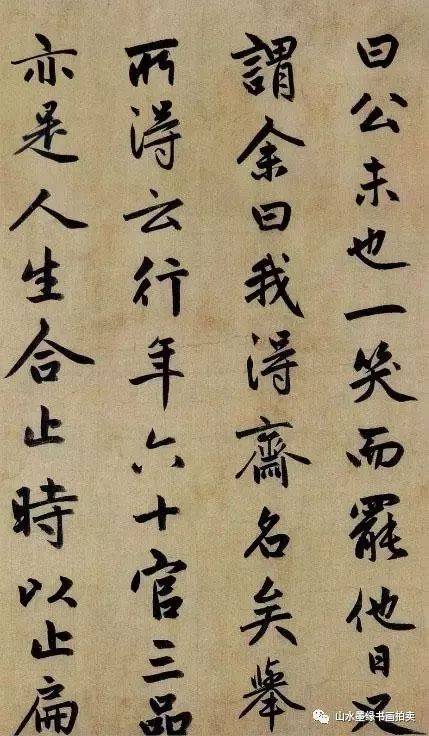 曰公未也一笑而罷他日足
謂余曰我得齋名矣舉
所得云行年六十官三品
亦是人生合止時以止扁
山水墨缘书画拍卖